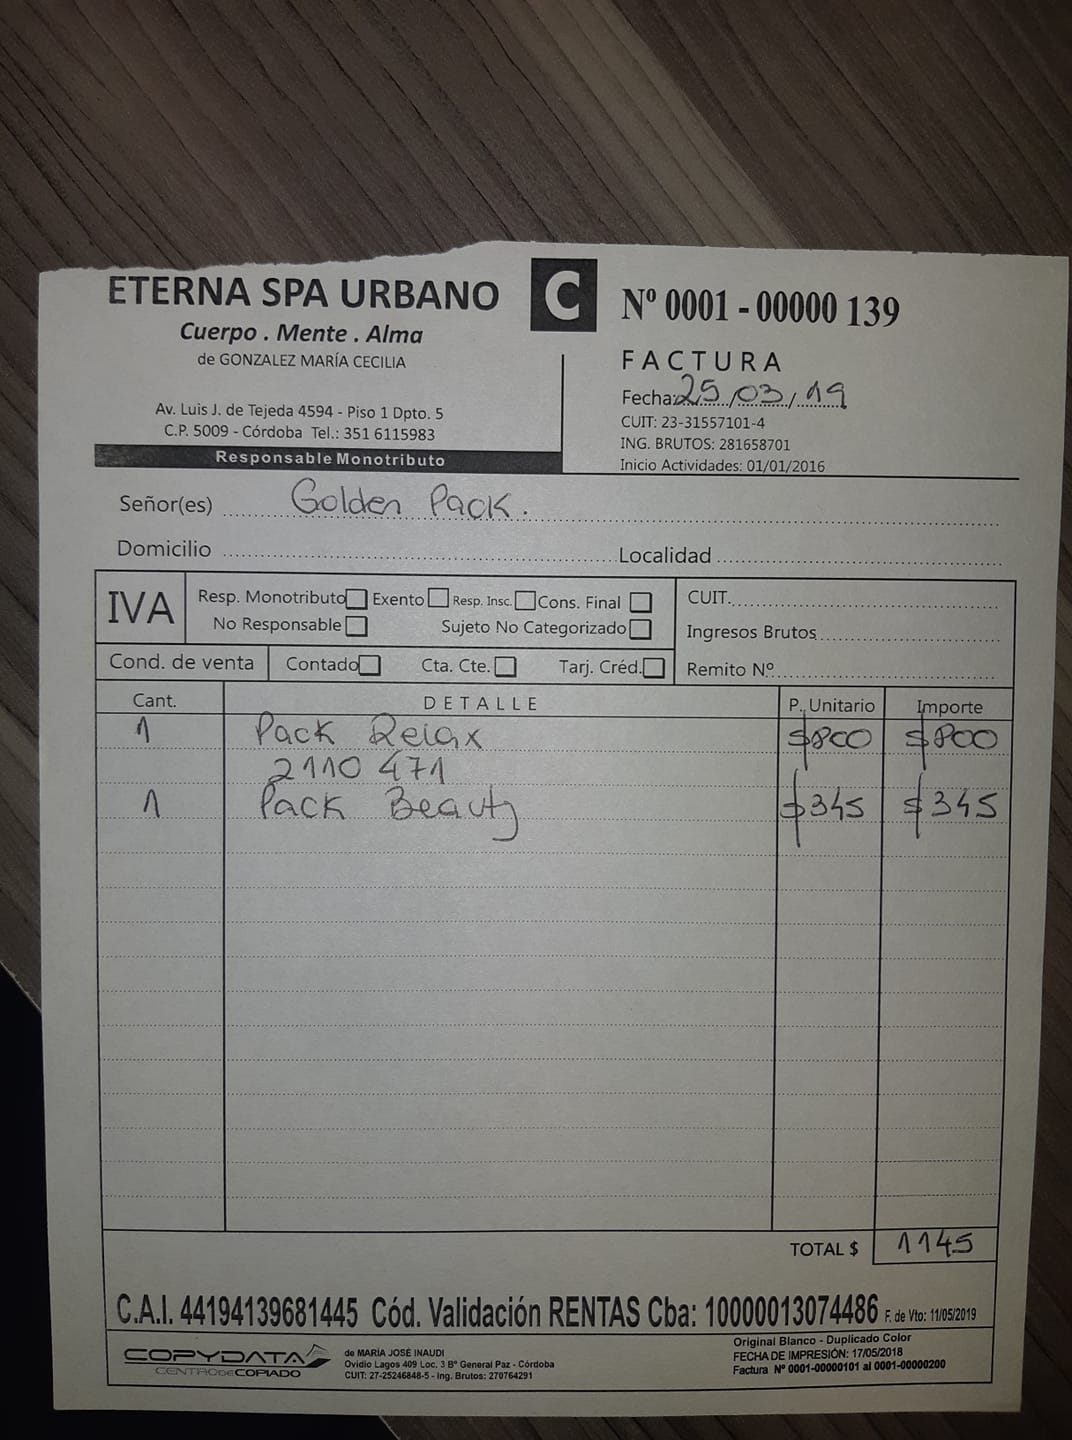 ETERNA SPA URBANO
Cuerpo . Mente . Alma
de GONZALEZ MARÍA CECILIA
Av. Luis J. de Tejeda 4594 - Piso 1 Dpto. 5
C.P. 5009 - Córdoba Tel.: 351 6115983
Responsable Monotributo
C
Nº 0001 - 00000 139
FACTURA
Fecha: 25/03/19
CUIT: 23-31557101-4
ING. BRUTOS: 281658701
Inicio Actividades: 01/01/2016
Señor(es) Golden Pack.
Domicilio Localidad
IVA Resp. Monotributo Exento Resp. Insc. Cons. Final
No Responsable Sujeto No Categorizado
CUIT.
Ingresos Brutos
Cond. de venta Contado Cta. Cte. Tarj. Créd. Remito Nº
Cant. DETALLE P. Unitario Importe
1 Pack Relax $800 $800
2110 471
1 Pack Beauty $345 $345
TOTAL $ 1145
C.A.I. 44194139681445 Cód. Validación RENTAS Cba: 10000013074486 F. de Vto: 11/05/2019
COPYDATA
CENTRO DE COPIADO
de MARÍA JOSÉ INAUDI
Ovidio Lagos 409 Loc. 3 Bº General Paz - Córdoba
CUIT: 27-25246848-5 - Ing. Brutos: 270764291
Original Blanco - Duplicado Color
FECHA DE IMPRESIÓN: 17/05/2018
Factura Nº 0001-00000101 al 0001-00000200